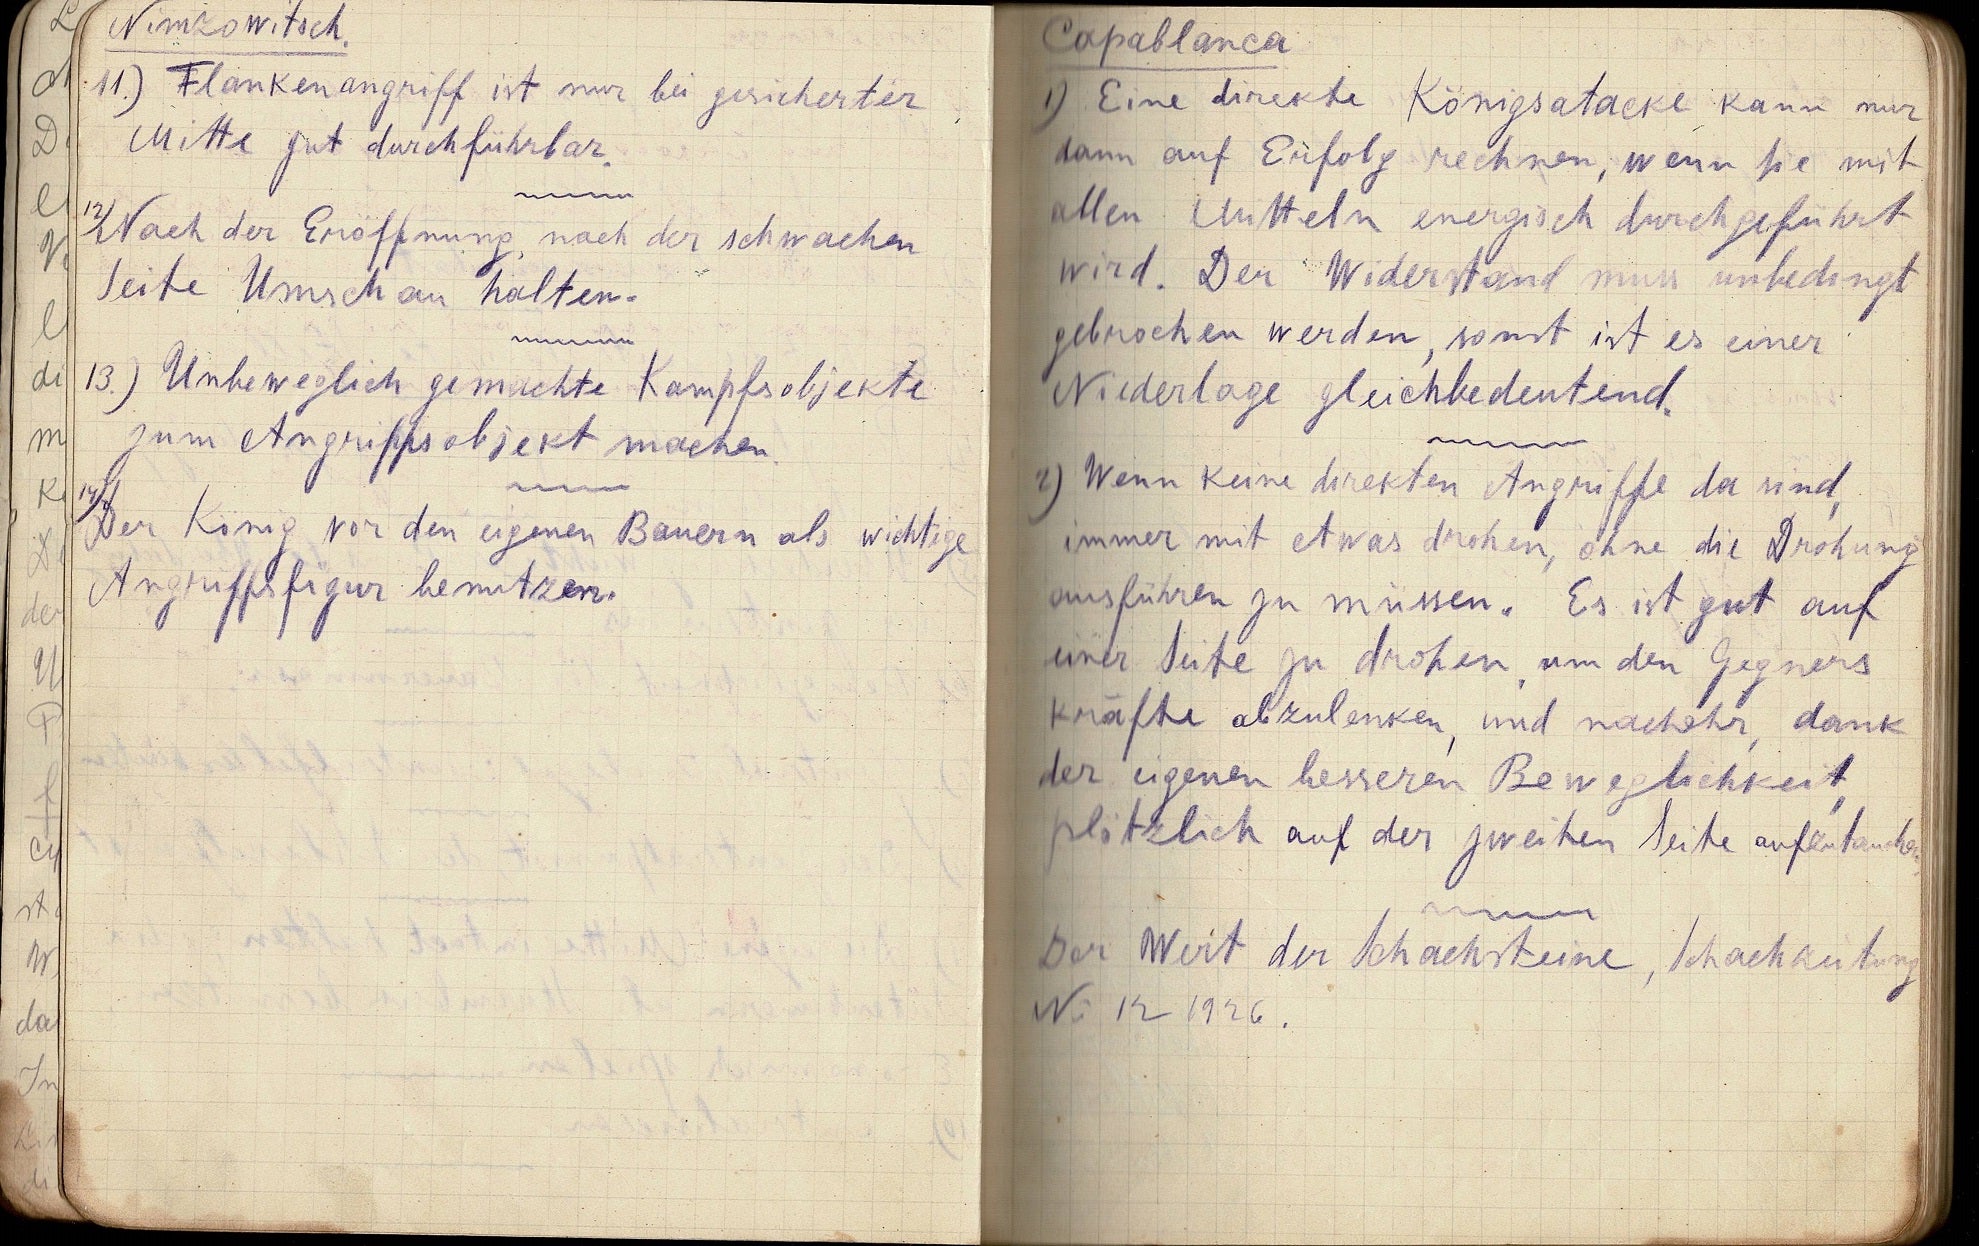 Nimzowitsch.
11.) Flankenangriff ist nur bei gesicherter
Mitte gut durchführbar.
12) Nach der Eröffnung, nach der schwachen
Seite Umschau halten.
13.) Unbeweglich gemachte Kampfsobjekte
zum Angriffsobjekt machen.
14) Der König vor den eigenen Bauern als wichtige
Angriffsfigur benutzen.
Capablanca
1) Eine direkte Königsatacke kann nur
dann auf Erfolg rechnen, wenn sie mit
allen Mitteln energisch durchgeführt
wird. Der Widerstand muss unbedingt
gebrochen werden, sonst ist es einer
Niederlage gleichbedeutend.
2) Wenn keine direkten Angriffe da sind,
immer mit etwas drohen, ohne die Drohung
ausführen zu müssen. Es ist gut auf
einer Seite zu drohen, um den Gegners
kräfte abzulenken, und nachehr, dank
der eigenen besseren Beweglichkeit,
plötzlich auf der zweiten Seite aufzutauchen
Der Wert der Schachsteine, Schachzeitung
No 12 1926.